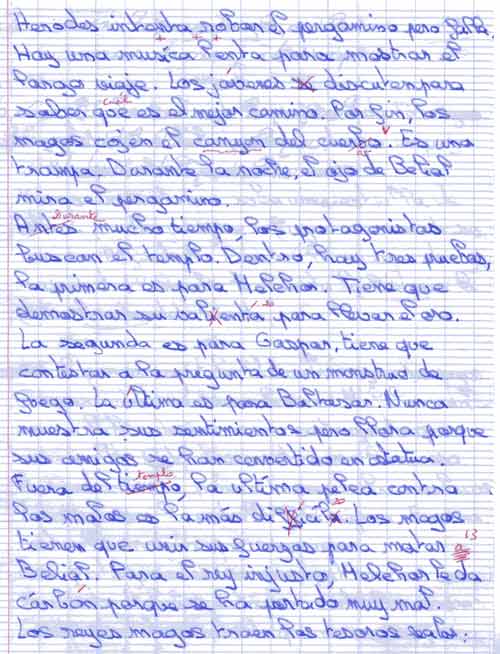 Herodes intenta robar el pergamino pero falla.
Hay una musica lenta para mostrar el
largo viaje. Los jovenes discuten para
cuál
saber que es el mejor camino. Por fin, los
magos cojen el canyon del cuerbo. Es una
trampa. Durante la noche, el ojo de Belial
mira el pergamino.
Durante
Antes mucho tiempo, los protagonistas
buscan el templo. Dentro, hay tres pruebas,
la primera es para Melchor. Tiene que
demostrar su para llevar el oro.
La segunda es para Gaspar, tiene que
contestar a la pregunta de un monstruo de
fuego. La última es para Baltasar. Nunca
muestra sus sentimientos pero llora porque
sus amigos se han convertido en estatua.
templo
Fuera del tiempo, la ultima pelea contra
los malos es la más. Los magos
tienen que unir sus fuerzas para matar a
Belial. Para el rey injusto, Melchor le da
carbón porque se ha portado muy mal.
Los reyes magos traen los tesoros